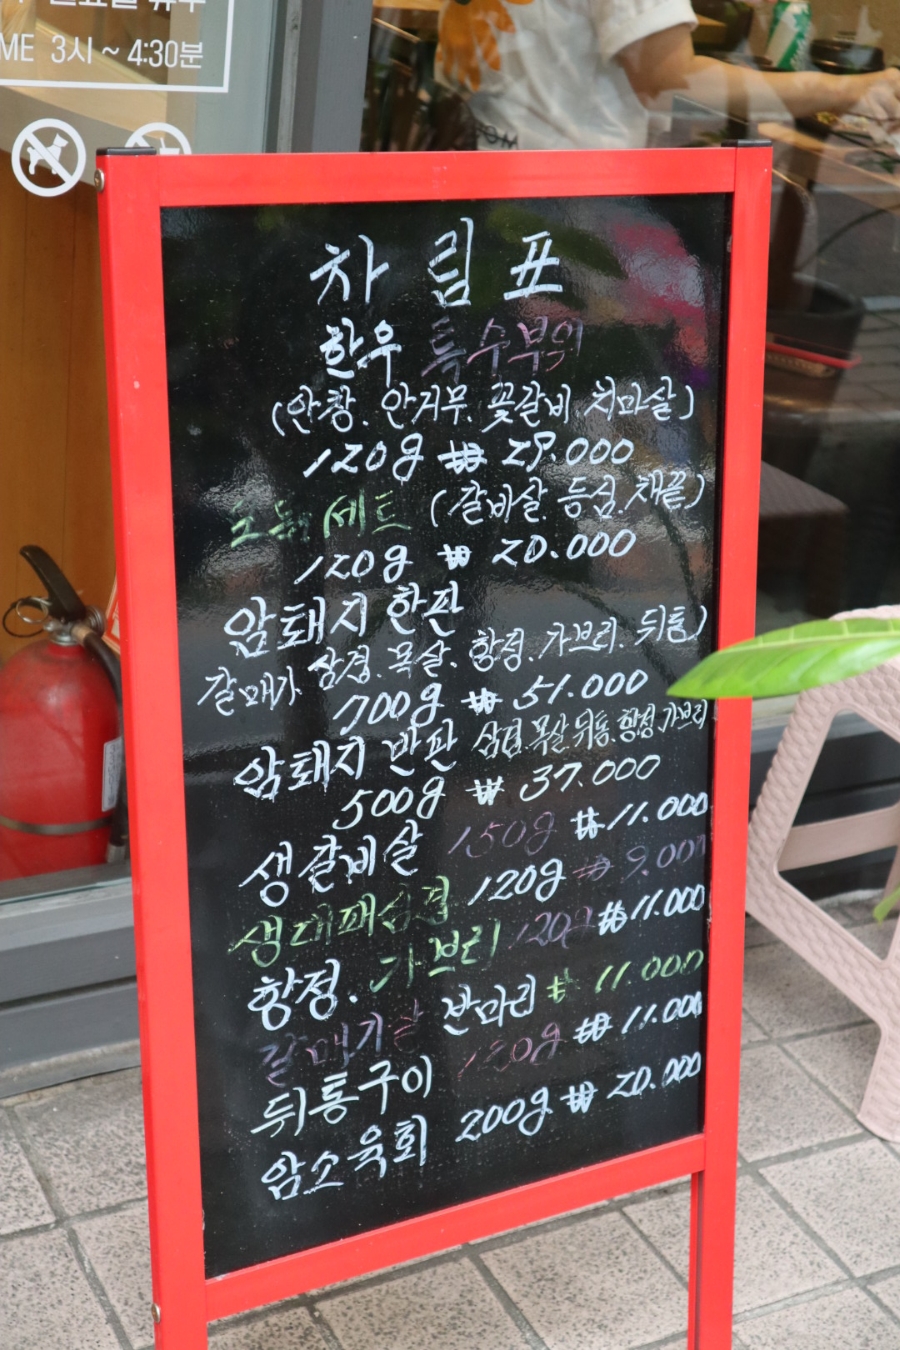 ME 3시 ~ 4:30분
차림표
한우 특수부위
(안창. 안거무. 꽃갈비 치마살)
120g ₩ 29.000
오늘 세트 (갈비살. 등심. 채끝)
120g ₩ 20.000
암퇘지 한판
갈매기 삼겹. 목살. 항정. 가브리. 뒤통)
700g ₩ 51.000
암퇘지 반판 삼겹 목살 뒤통. 항정 가브리
500g ₩ 37.000
생갈비살 150g ₩ 11.000
생대패삼겹 120g ₩ 9.000
항정. 가브리 120g ₩ 11.000
갈매기살 반마리 ₩ 11.000
뒤통구이 120g ₩ 11.000
암소육회 200g ₩ 20.000